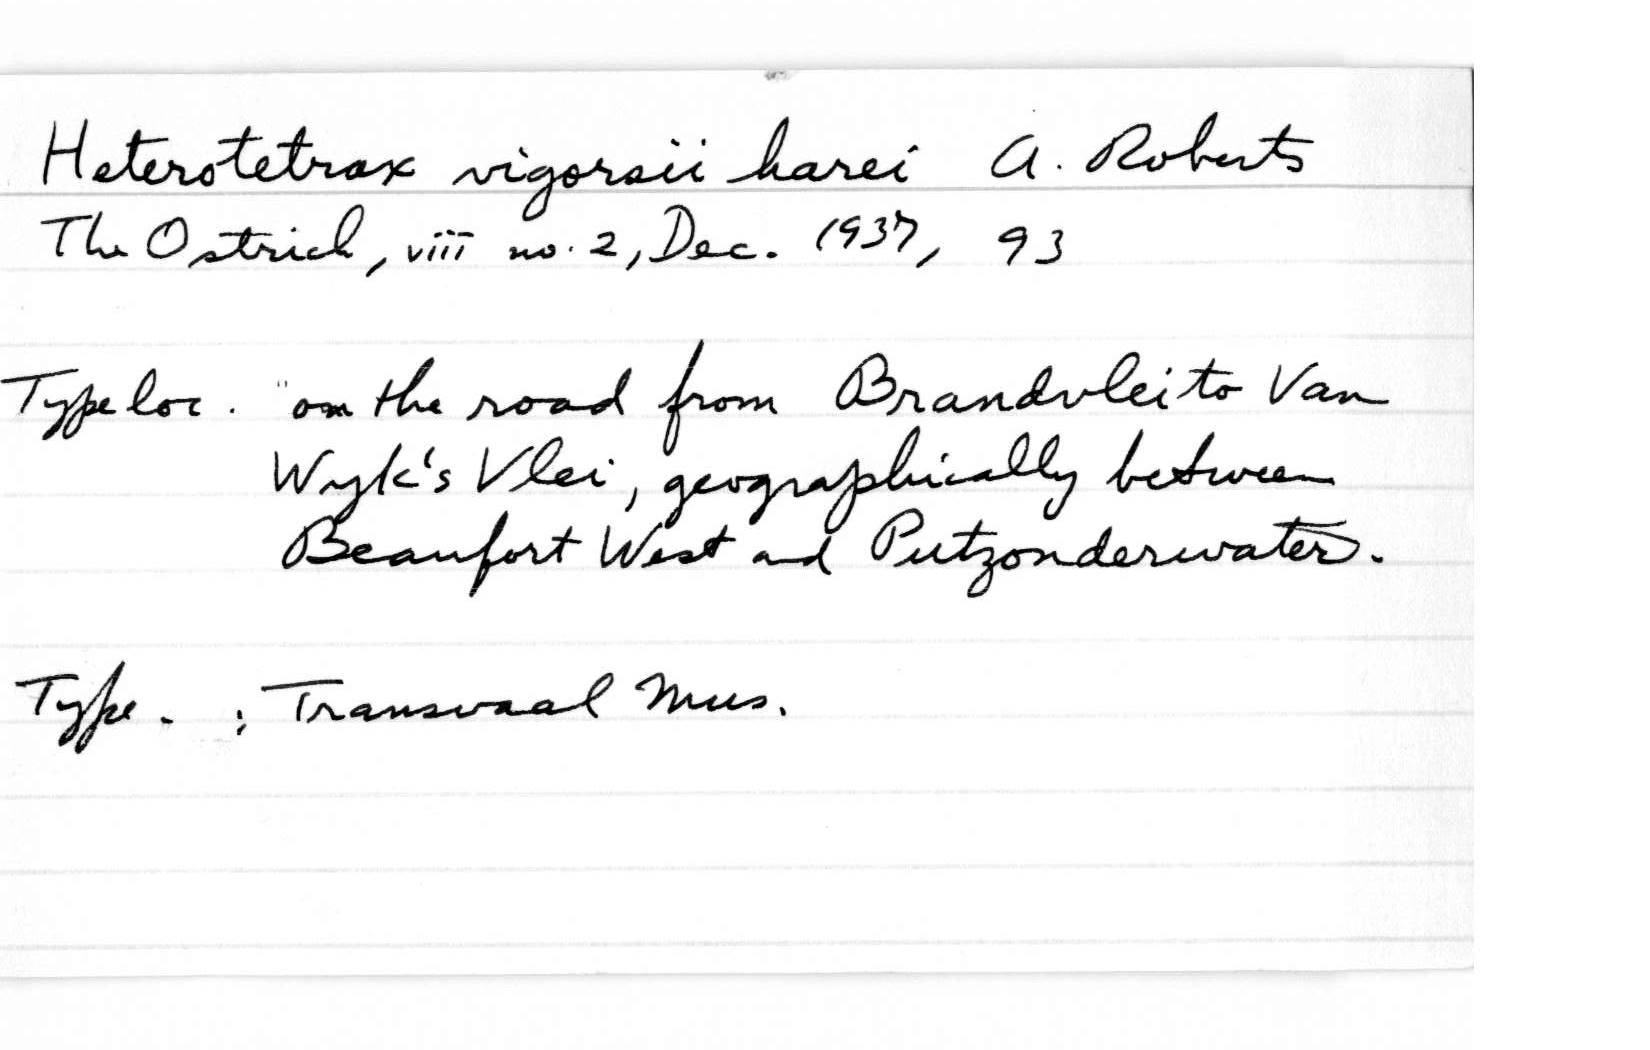 Heterotetrax vigorsii harei A. Roberts
The Ostrich, viii no. 2, Dec. 1937, 93
Type loc. "on the road from Brandvlei to Van
Wyk's Vlei, geographically between
Beaufort West and Putzonderwater.
Type. : Transvaal Mus.